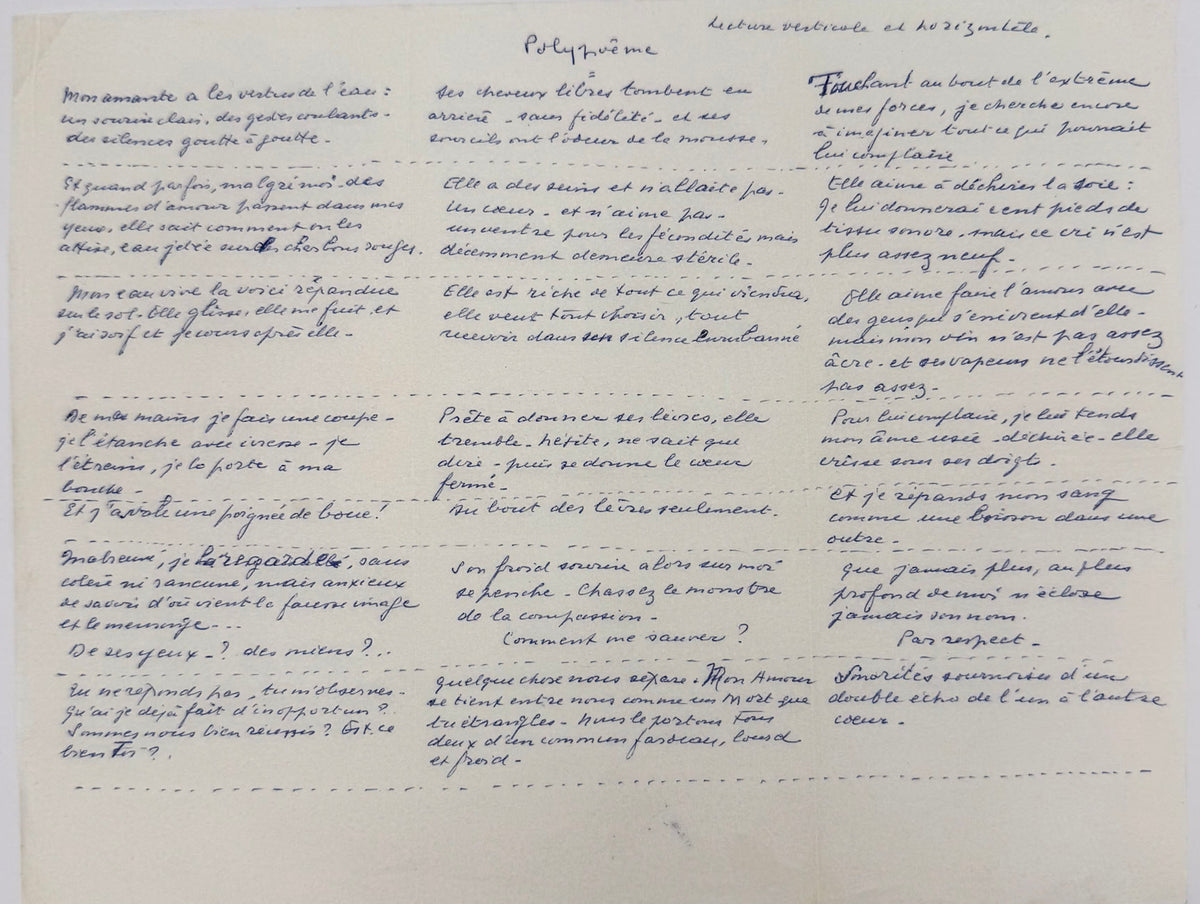 Lecture verticale et horizontale.
Polypoême
Mon amante a les vertus de l'eau :
un sourire clair, des gestes coulants -
des silences goutte à goutte -
Ses cheveux libres tombent en
arrière - sans fidélité - et ses
sourcils ont l'odeur de la mousse.
Touchant au bout de l'extrême
de mes forces, je cherche encore
à imaginer tout ce qui pourrait
lui complaire
Et quand parfois, malgré moi - des
flammes d'amour passent dans mes
yeux, elle sait comment on les
attise, eau jetée sur les charbons rouges.
Elle a des seins et n'allaite pas -
Un cœur - et n'aime pas -
un ventre pour les fécondités mais
décemment demeure stérile -
Elle aime à déchirer la soie :
Je lui donnerai cent pieds de
tissu sonore, mais ce cri n'est
plus assez neuf -
Mon eau vive la voici répandue
sur le sol. Elle glisse, elle me fuit, et
j'ai soif et je cours après elle -
Elle est riche de tout ce qui viendra,
elle veut tout choisir, tout
recevoir dans son silence enrubanné
Elle aime faire l'amour avec
des gens qui s'enivrent d'elle -
mais mon vin n'est pas assez
âcre - et ses vapeurs ne l'étourdissent
pas assez -
De mes mains je fais une coupe -
je l'étanche avec ivresse - je
l'étreins, je la porte à ma
bouche -
Prête à donner ses lèvres, elle
tremble - hésite, ne sait que
dire - puis se donne le cœur
fermé -
Pour lui complaire, je lui tends
mon âme usée - déchirée - elle
crisse sous ses doigts -
Et j'avale une poignée de boue !
Du bout des lèvres seulement.
Et je répands mon sang
comme une boisson dans une
outre -
, je la regardais, sans
colère ni rancune, mais anxieux
de savoir d'où vient la fausse image
et le mensonge - - -
De ses yeux - ? des miens ? . .
Son froid sourire alors sur moi
se penche - Chassez le monstre
de la compassion -
Comment me sauver ?
Que jamais plus, au plus
profond de moi n'éclose
jamais son nom.
Par respect -
Tu ne réponds pas, tu m'observes -
Qu'ai je déjà fait d'inopportun ?
Sommes nous bien réunis ? Est. ce
bien Toi ? .
quelque chose nous sépare. Mon Amour
se tient entre nous comme un Mort que
tu étrangles - Nous le portons tous
deux d'un commun fardeau, lourd
et froid -
Sonorités sournoises d'un
double écho de l'un à l'autre
cœur -